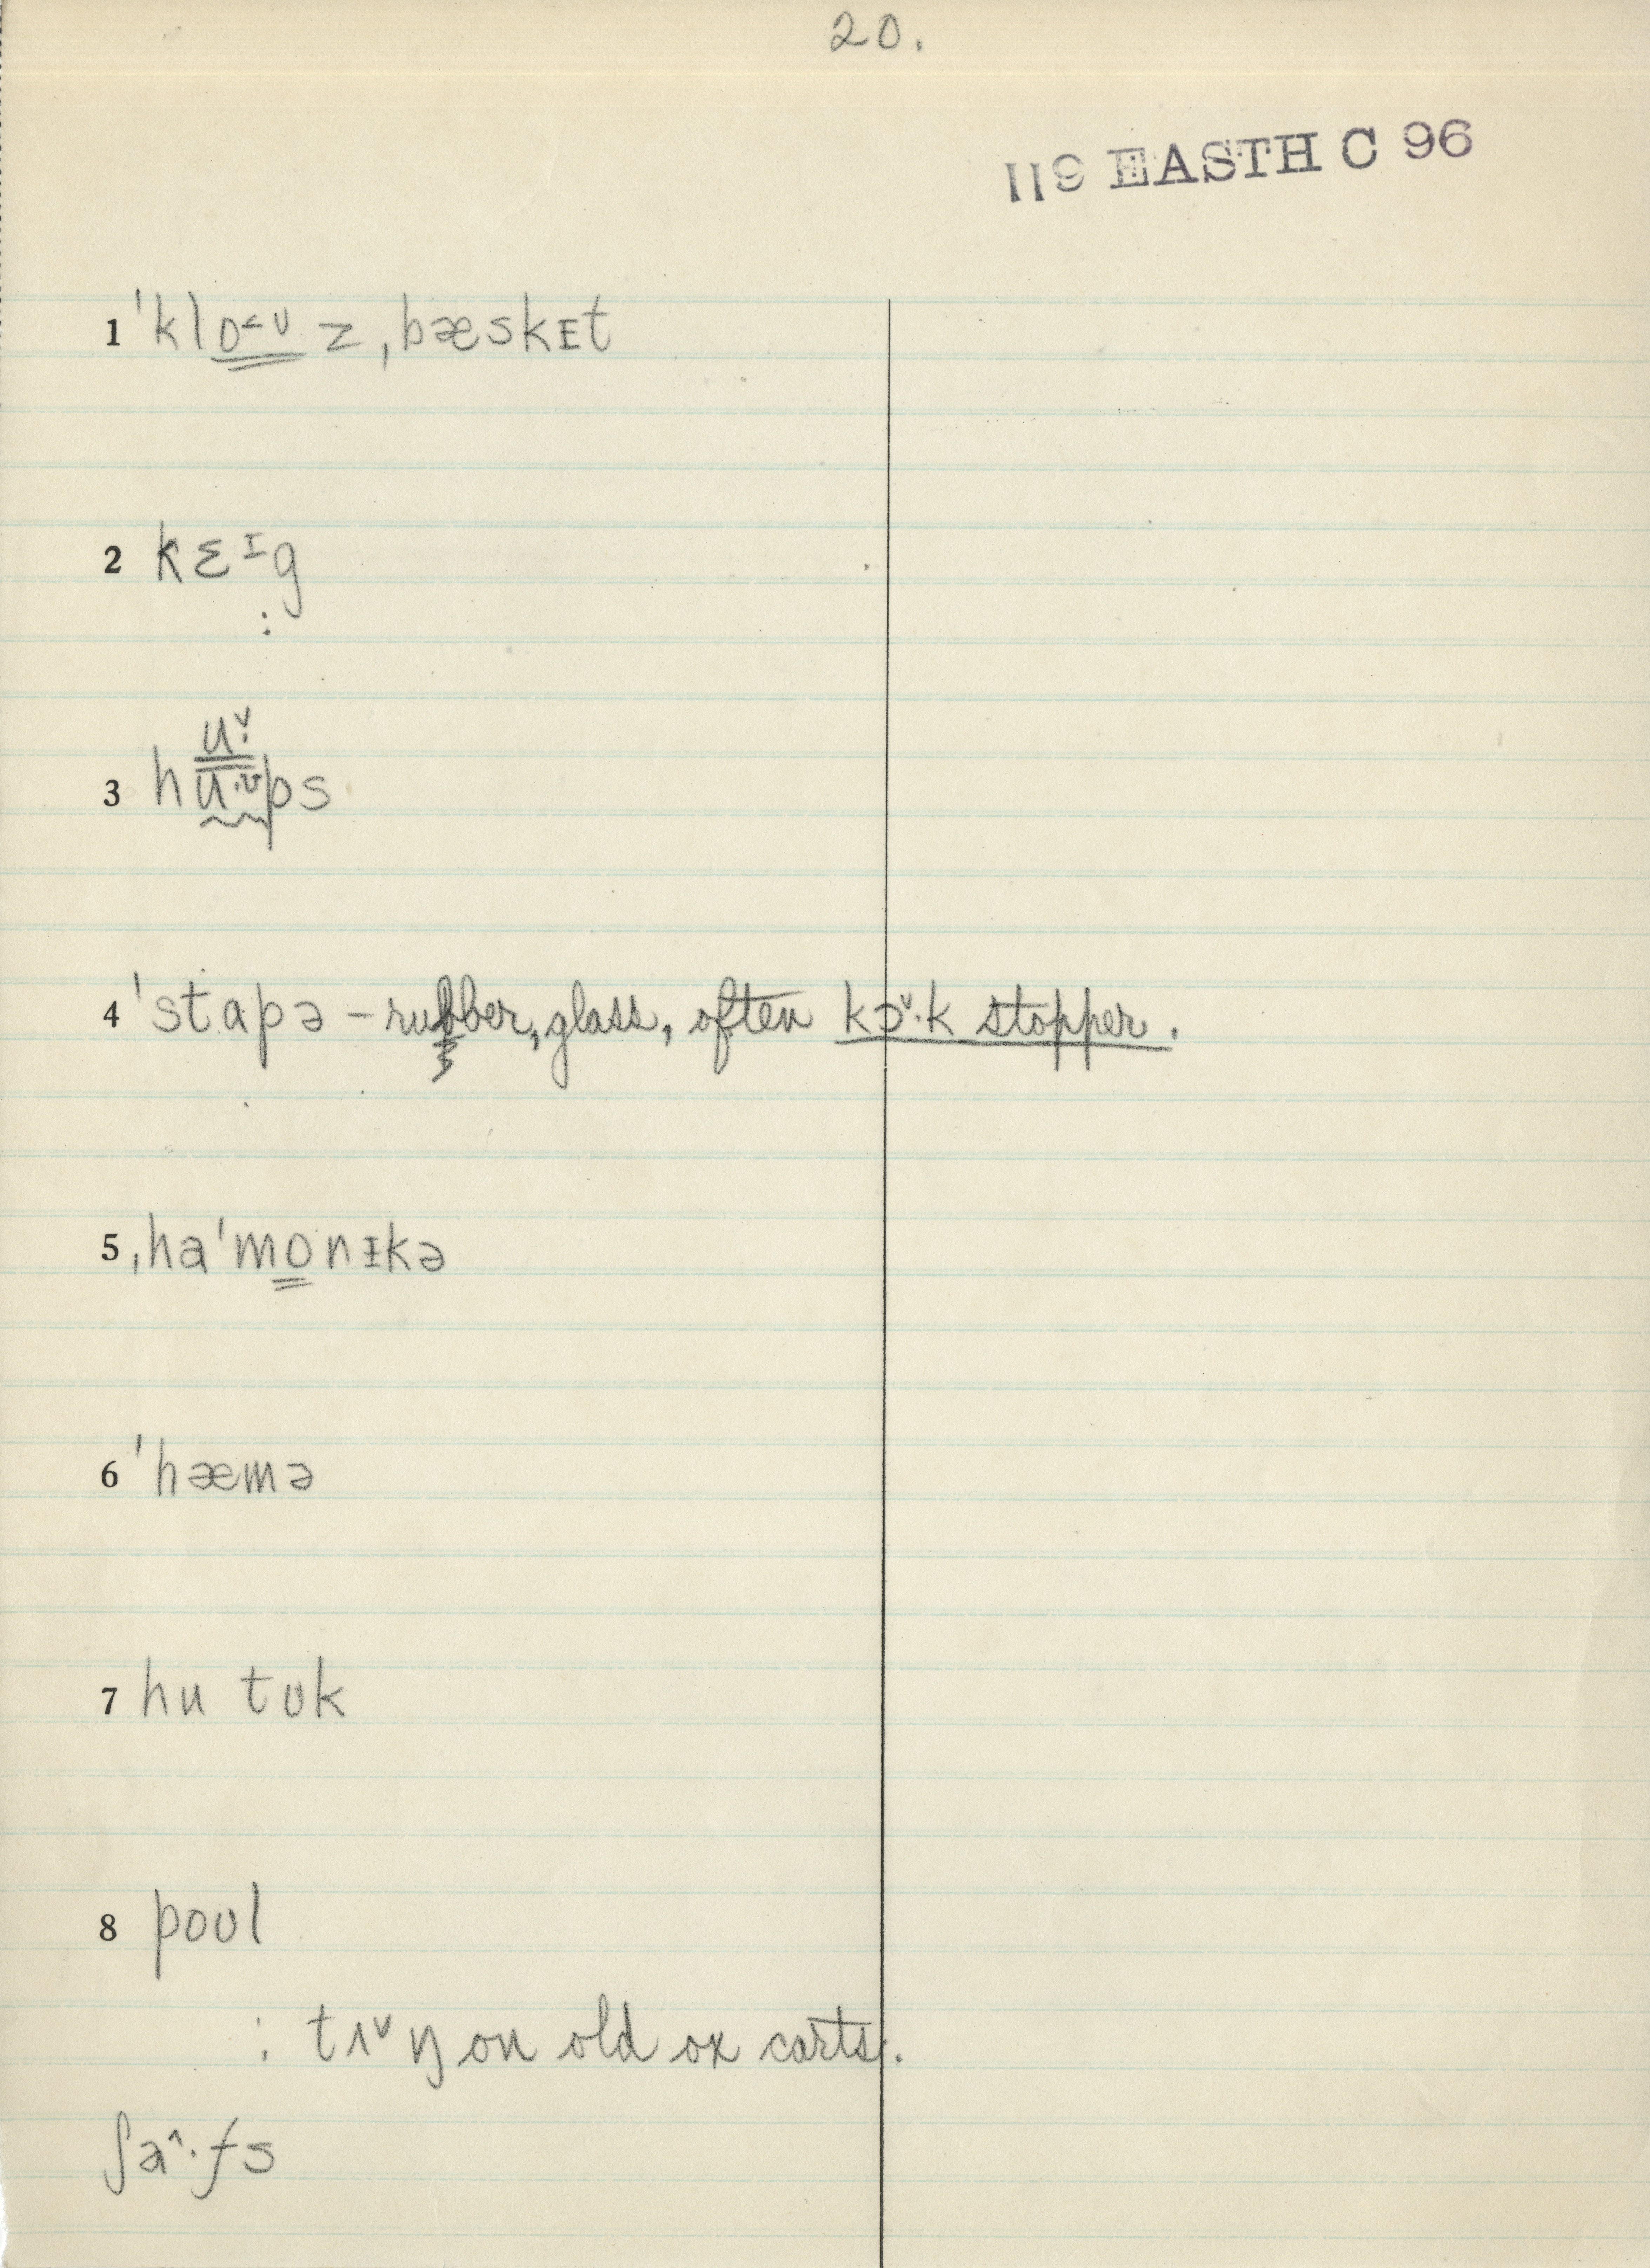 20.
119 EASTH C 96
1 ˈkloᶷz ˌbæskɪt
2 kɛᶦg
:
uˇ:
3 hu·ᶷps
4 ˈstapə – rubber, glass, often kɔˇ·k stopper.
5 ˌhaˈmonɪkə
6 ˈhæmə
7 hu tʊk
8 poʊl
: tʌˇŋ on old ox carts.
ʃaˆ·fs